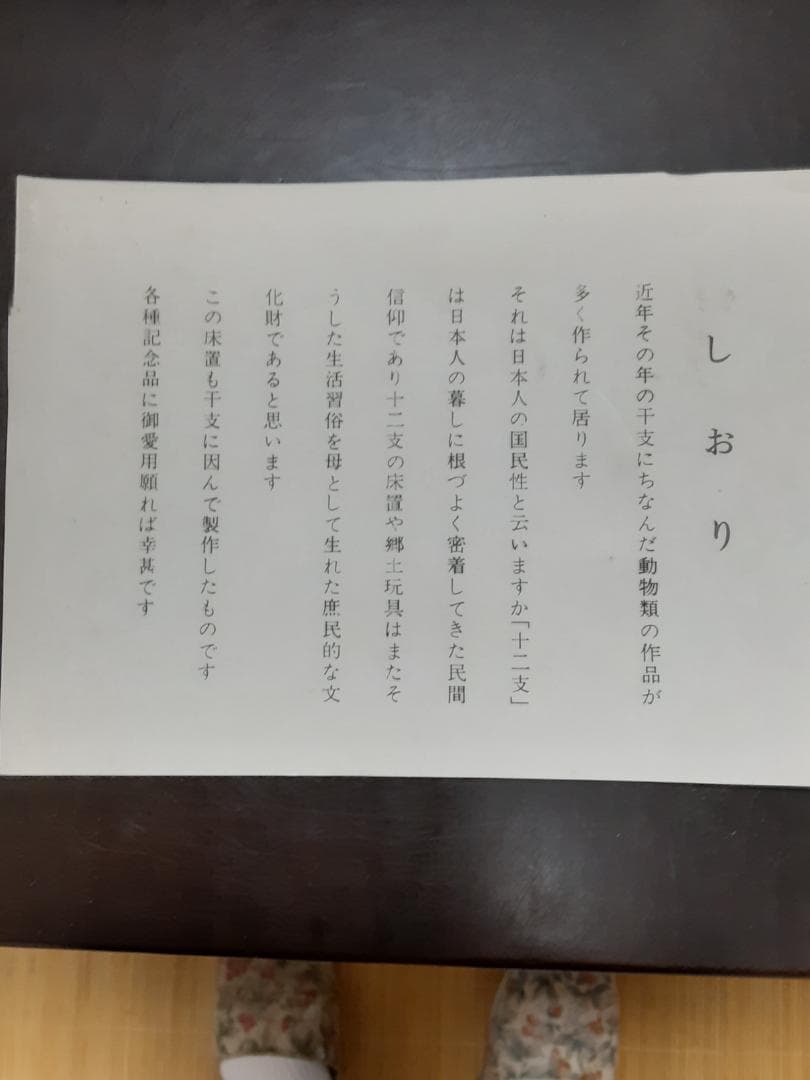 しおり
近年その年の干支にちなんだ動物類の作品が
多く作られて居ります
それは日本人の国民性と云いますか「十二支」
は日本人の暮しに根づよく密着してきた民間
信仰であり十二支の床置や郷土玩具はまたそ
うした生活習俗を母として生れた庶民的な文
化財であると思います
この床置も干支に因んで製作したものです
各種記念品に御愛用願れば幸甚です